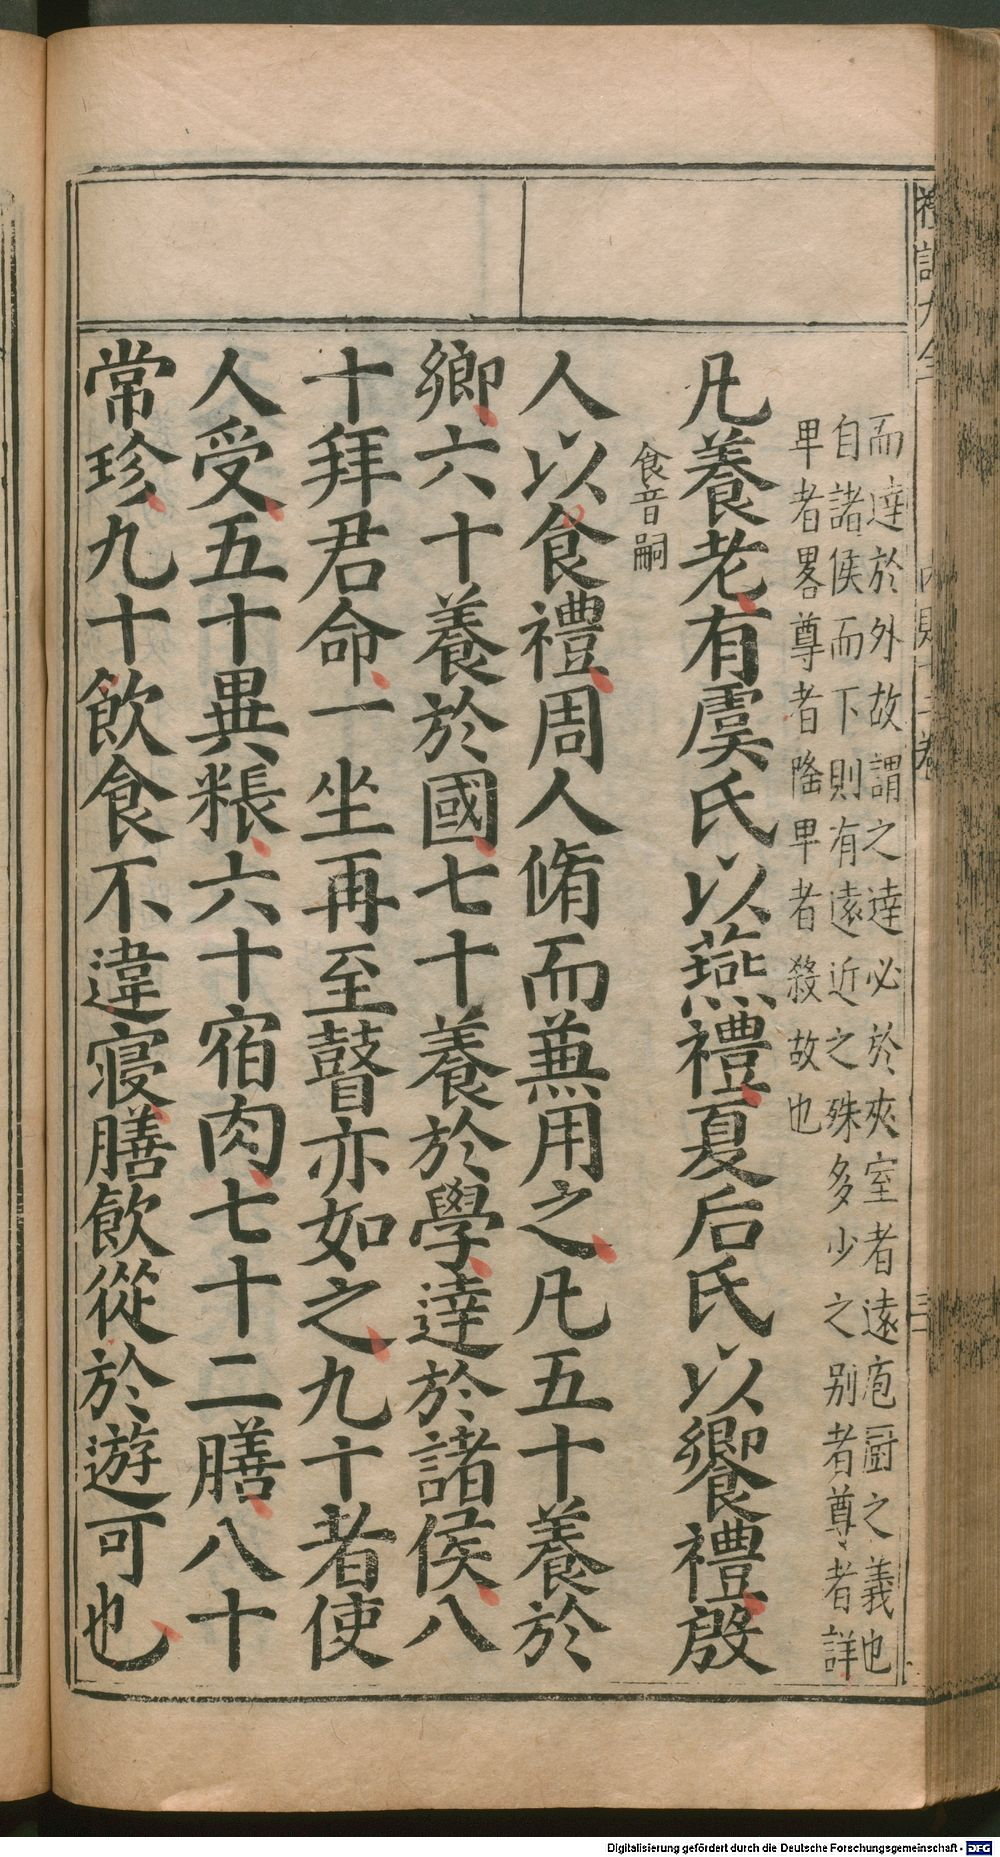 而逹於外故謂之逹必於夾室者逺庖厨之義也
自諸侯而下則有逺近之殊多少之别者尊者詳
卑者畧尊者隆卑者殺故也
凡養老有虞氏以燕禮夏后氏以饗禮殷
食音嗣
人以食禮周人脩而兼用之凡五十養於
鄉六十養於國七十養於學逹於諸侯八
十拜君命一坐再至瞽亦如之九十者使
人受五十異粻六十宿肉七十二膳八十
常珍九十飲食不違寢膳飲從於遊可也
Digitalisierung gefördert durch die Deutsche Forschungsgemeinschaft - DFG